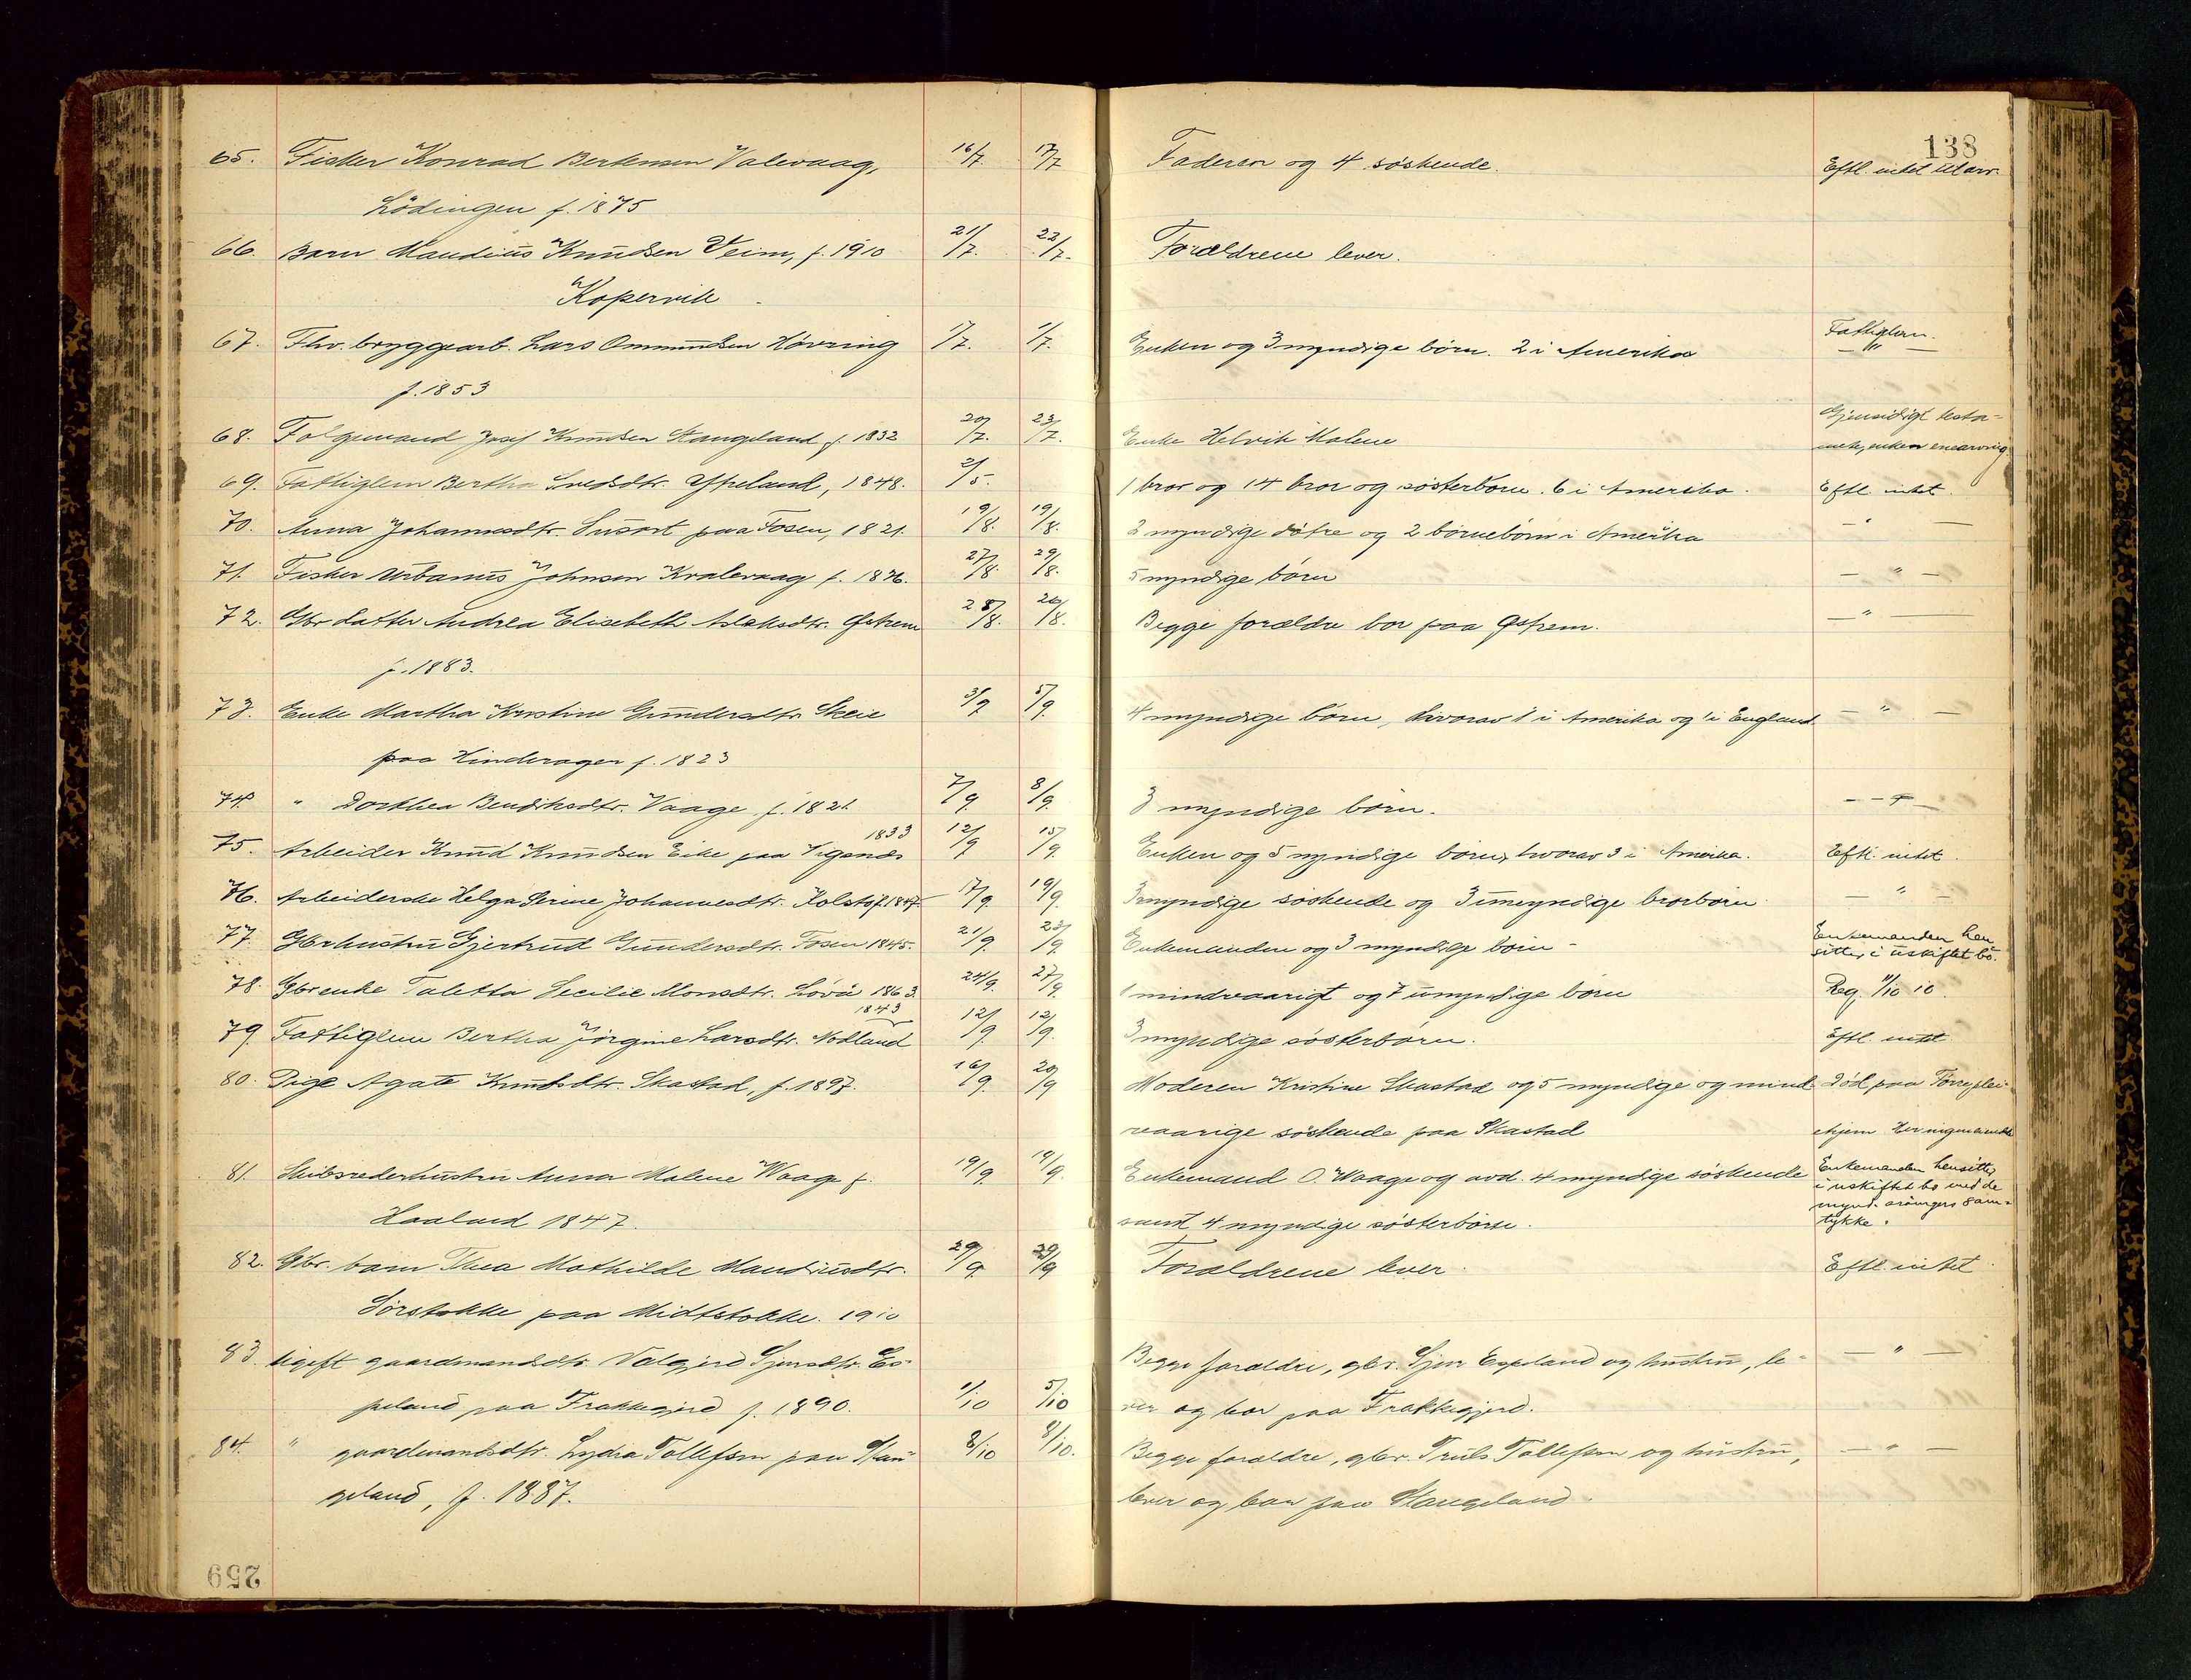 138
65. Fisker Konrad Berkensen Valevaag, 16/7. 17/7 Faderen og 4 søskende. Eftl. intet
Lödingen f. 1875
66. Barn Maudius Knudsen Veim, f. 1910 21/7. 22/7. Forældrene lever.
Kopervik
67. Fhv. bryggearb. Lars Ommundsen Hövring 1/7. 1/7. Enken og 3 myndige börn. 2 i Amerika Fattiglem.
f. 1853 — " —
68. Folgemand Josef Knudsen Stangeland f. 1832 20/7. 23/7. Enke Helvik Malene Gjensidigt testa-
mente, enken enearving
69. Fattiglem Bertha Sveds dtr. Ytreland, 1848. 2/5. 1 bror og 14 bror og søsterbørn. 6 i Amerika. Eftl. intet.
70. Anna Johannesdtr. Snsort paa Fosen, 1821. 19/8. 19/8. 2 myndige døtre og 2 børnebörn i Amerika — " —
71. Fisker Urbanus Johnsen Kvalevaag f. 1876. 27/8. 29/8. 5 myndige børn — " —
72. Gbr datter Andrea Elisebeth Aslaksdtr. Østrem 28/8. 26/8. Begge forældre bor paa Østrem. — " —
f. 1883.
73. Enke Martha Kristine Gundersdtr Skeie 3/9 5/9. 4 myndige børn, hvorav 1 i Amerika og 1 i England — " —
paa Hinderager f. 1823
74. " Dorthea Bendiksdtr. Vaage f. 1821 7/9 8/9. 3 myndige børn. — " —
1833
75. Arbeider Knud Knudsen Eike paa Vigenes 12/9 15/9. Enken og 5 myndige børn, hvorav 3 i Amerika. Eftl. intet.
76. Arbeiderske Helga Serine Johannesdtr. Kolstø f. 1847 17/9. 19/9. 3 myndige søskende og 3 umyndige brorbørn — " —
77. Gbrhustru Gjertrud Gundersdtr. Fosen 1845. 21/9. 23/9 Enkemanden og 3 myndige børn - Enkemanden hen
sitter i uskiftet bo.
78. Gbrenke Taletta Secilie Monsdtr. Lövö 1863. 24/9. 27/9 1 mindreaarigt og 7 umyndige børn Reg. 11/10 10.
1843
79. Fattiglem Bertha Jörgine Larsdtr. Nodland 12/9 12/9. 3 myndige søsterbørn. Eftl. intet.
80. Pige Agate Knudsdtr. Skastad, f. 1897. 16/9. 20/9 Moderen Kristine Skastad og 5 myndige og mind- Död paa Törreplei-
reaarige søskende paa Skastad ehjem
81. Skibsrederhustru Anna Malene Waage f. 19/9 19/9. Enkemand O. Waage og avd. 4 myndige søskende Enkemanden hensitter
i uskiftet bo med de
mynd. arvingers sam-
tykke.
Haaland 1847. samt 4 myndige søsterbørn.
82. Gbr. barn Thea Mathilde Maudiusdtr. 29/9 29/9 Forældrene lever. Eftl. intet
Sørstokke paa Midtstokke. 1910
83. Ugift gaardmandsdtr. Valgjerd Sjursdtr. Es- Begge forældre, gbr. Sjur Espeland og hustru, le- — " —
peland paa Frakkagjerd f. 1890. 1/10 5/10 ver og bor paa Frakkagjerd.
84. " gaardmandsdtr. Lydia Tollefsen paa Stan- 8/10 8/10. Begge forældre, gbr. Truls Tollefsen og hustru, — " —
geland, f. 1887. lever og bor paa Stangeland.
259